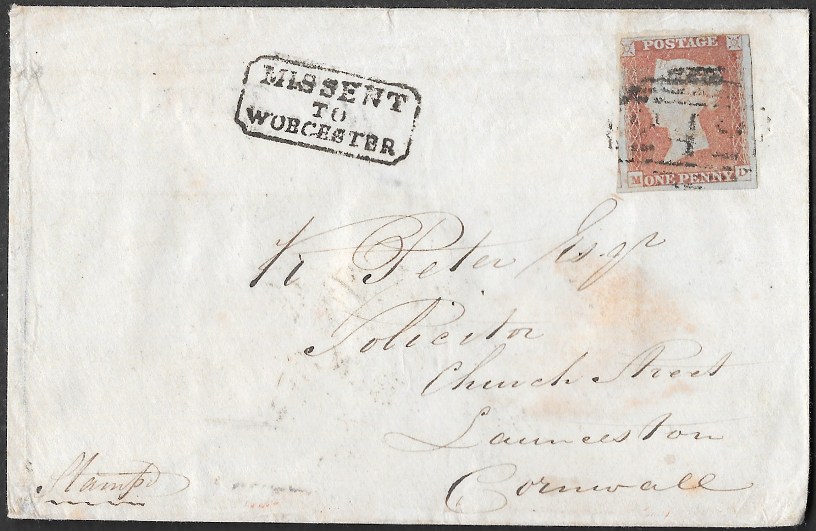 MISSENT
TO
WORCESTER
POSTAGE
M ONE PENNY D
Peter Esqr
Solicitor
Church Street
Launceston
Cornwall
Stampd